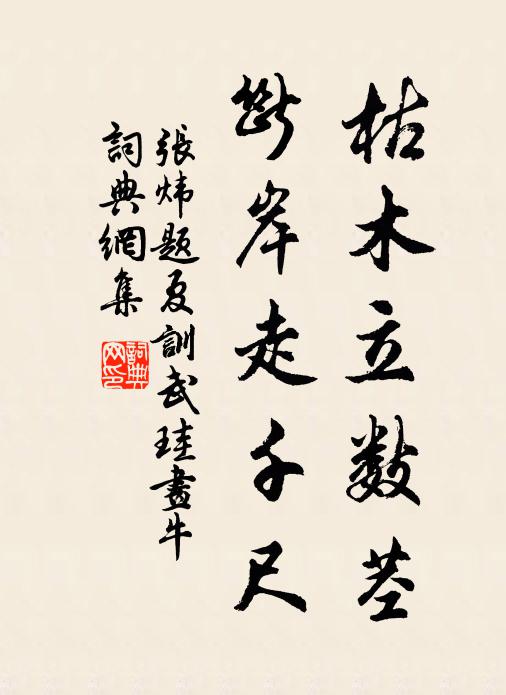 枯木立數莖
斷岸走千尺
張煒題夏訓武珪畫牛
詞典網集
詞典網印